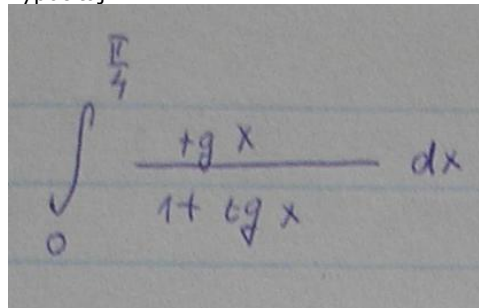 π/4
∫ tg x / 1 + tg x dx
0